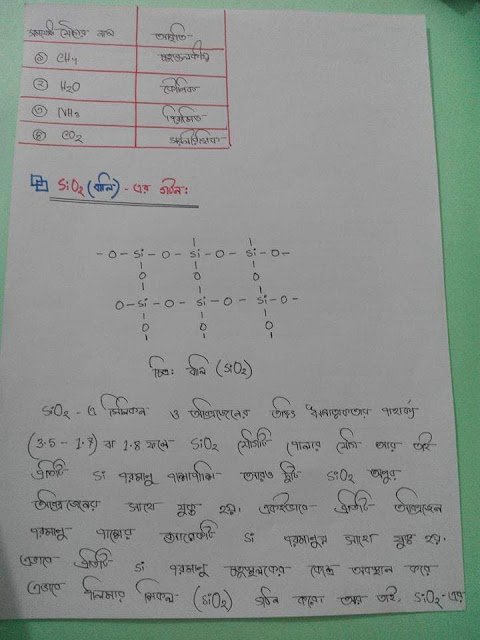 সমযোজী যৌগের নাম আকৃতি
(১) CH4 চতুস্তলকীয়
(২) H2O কৌণিক
(৩) NH3 পিরামিড
(৪) CO2 সরলরৈখিক
SiO2 (বালি) - এর গঠন:
- O - Si - O - Si - O - Si - O -
O O O
O - Si - O - Si - O - Si - O -
O O O
চিত্র: বালি (SiO2)
SiO2 - এ সিলিকন ও অক্সিজেনের তড়িৎ ঋণাত্মকতার পার্থক্য
(3.5 - 1.7) বা 1.8 ফলে SiO2 যৌগটি পোলার যৌগ আর তাই
প্রতিটি Si পরমাণু পাশাপাশি আরও দুটি SiO2 অণুর
অক্সিজেনের সাথে যুক্ত হয়। একইভাবে প্রতিটি অক্সিজেন
পরমাণু পাশের আরেকটি Si পরমাণুর সাথে যুক্ত হয়।
এভাবে প্রতিটি Si পরমাণু চতুস্তলকের কেন্দ্রে অবস্থান করে
এভাবে পলিমার সিলিকন (SiO2) গঠন করে। আর তাই, SiO2-এর